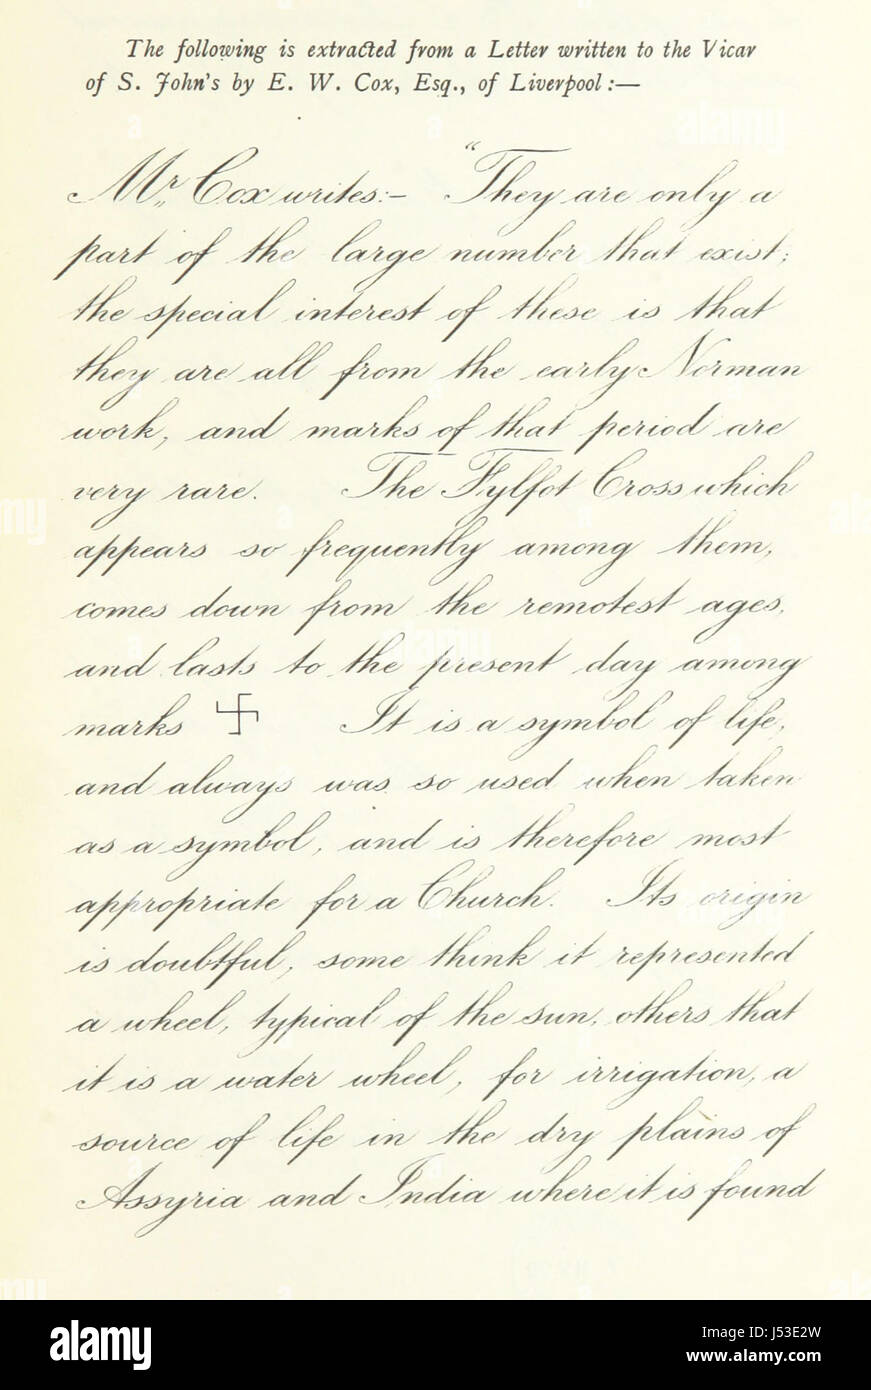 The following is extracted from a Letter written to the Vicar
of S. John's by E. W. Cox, Esq., of Liverpool:—
Mr. Cox writes:— "They are only a
part of the large number that exist;
the special interest of these is that
they are all from the early Norman
work, and marks of that period are
very rare. The Fylfot Cross which
appears so frequently among them,
comes down from the remotest ages,
and lasts to the present day among
marks 卐 It is a symbol of life,
and always was so used when taken
as a symbol, and is therefore most
appropriate for a Church. Its origin
is doubtful, some think it represented
a wheel, typical of the sun, others that
it is a water wheel, for irrigation, a
source of life in the dry plains of
Assyria and India where it is found
alamy
Image ID: J53E2W
www.alamy.com